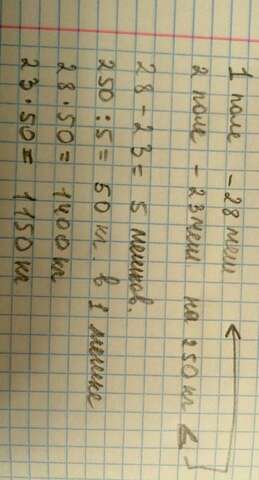 1 поле - 28 меш
2 поле - 23 меш на 250 кг
28 - 23 = 5 мешков.
250 : 5 = 50 кг. в 1 мешке
28 · 50 = 1400 кг
23 · 50 = 1150 кг